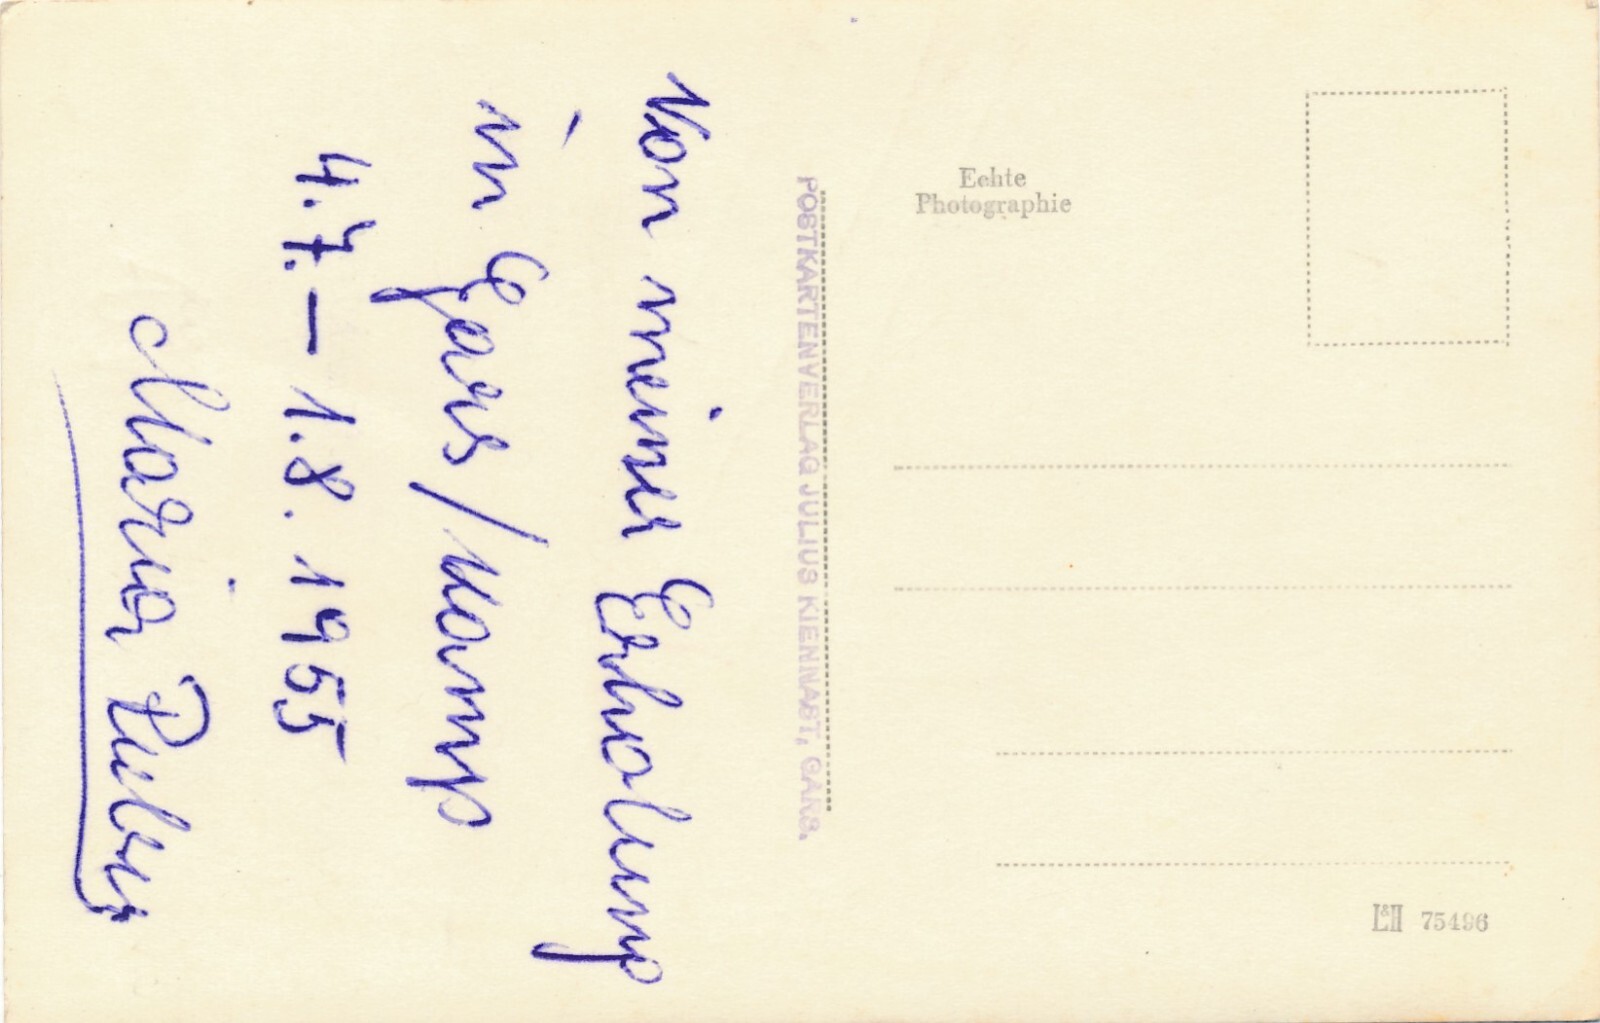 Von meiner Erholung
in Gars/Kamp
4.7. – 1.8. 1955
Maria
POSTKARTENVERLAG JULIUS KIENNAST, GARS.
Echte
Photographie
L&H 75496